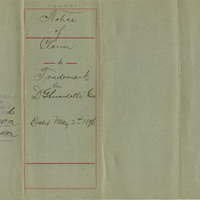 Notice
of
Claim
to
Trademark
by
D Ghirardelli Co
Dated May 2nd